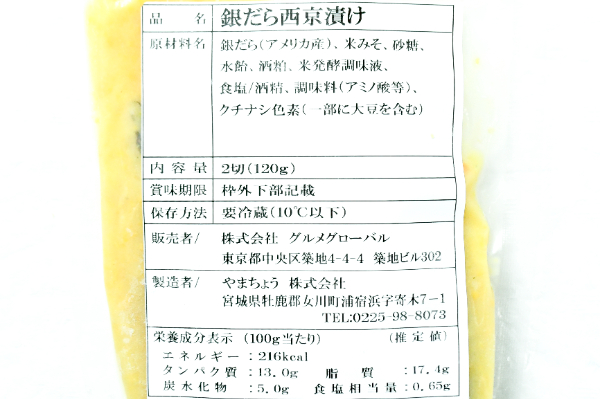 品名 銀だら西京漬け
原材料名 銀だら(アメリカ産)、米みそ、砂糖、
水飴、酒粕、米発酵調味液、
食塩/酒精、調味料(アミノ酸等)、
クチナシ色素(一部に大豆を含む)
内容量 2切(120g)
賞味期限 枠外下部記載
保存方法 要冷蔵(10℃以下)
販売者/ 株式会社 グルメグローバル
東京都中央区築地4-4-4 築地ビル302
製造者/ やまちょう 株式会社
宮城県牡鹿郡女川町浦宿浜字寄木7-1
TEL:0225-98-8073
栄養成分表示(100g当たり) (推定値)
エネルギー:216kcal
タンパク質:13.0g 脂質:17.4g
炭水化物:5.0g 食塩相当量:0.65g